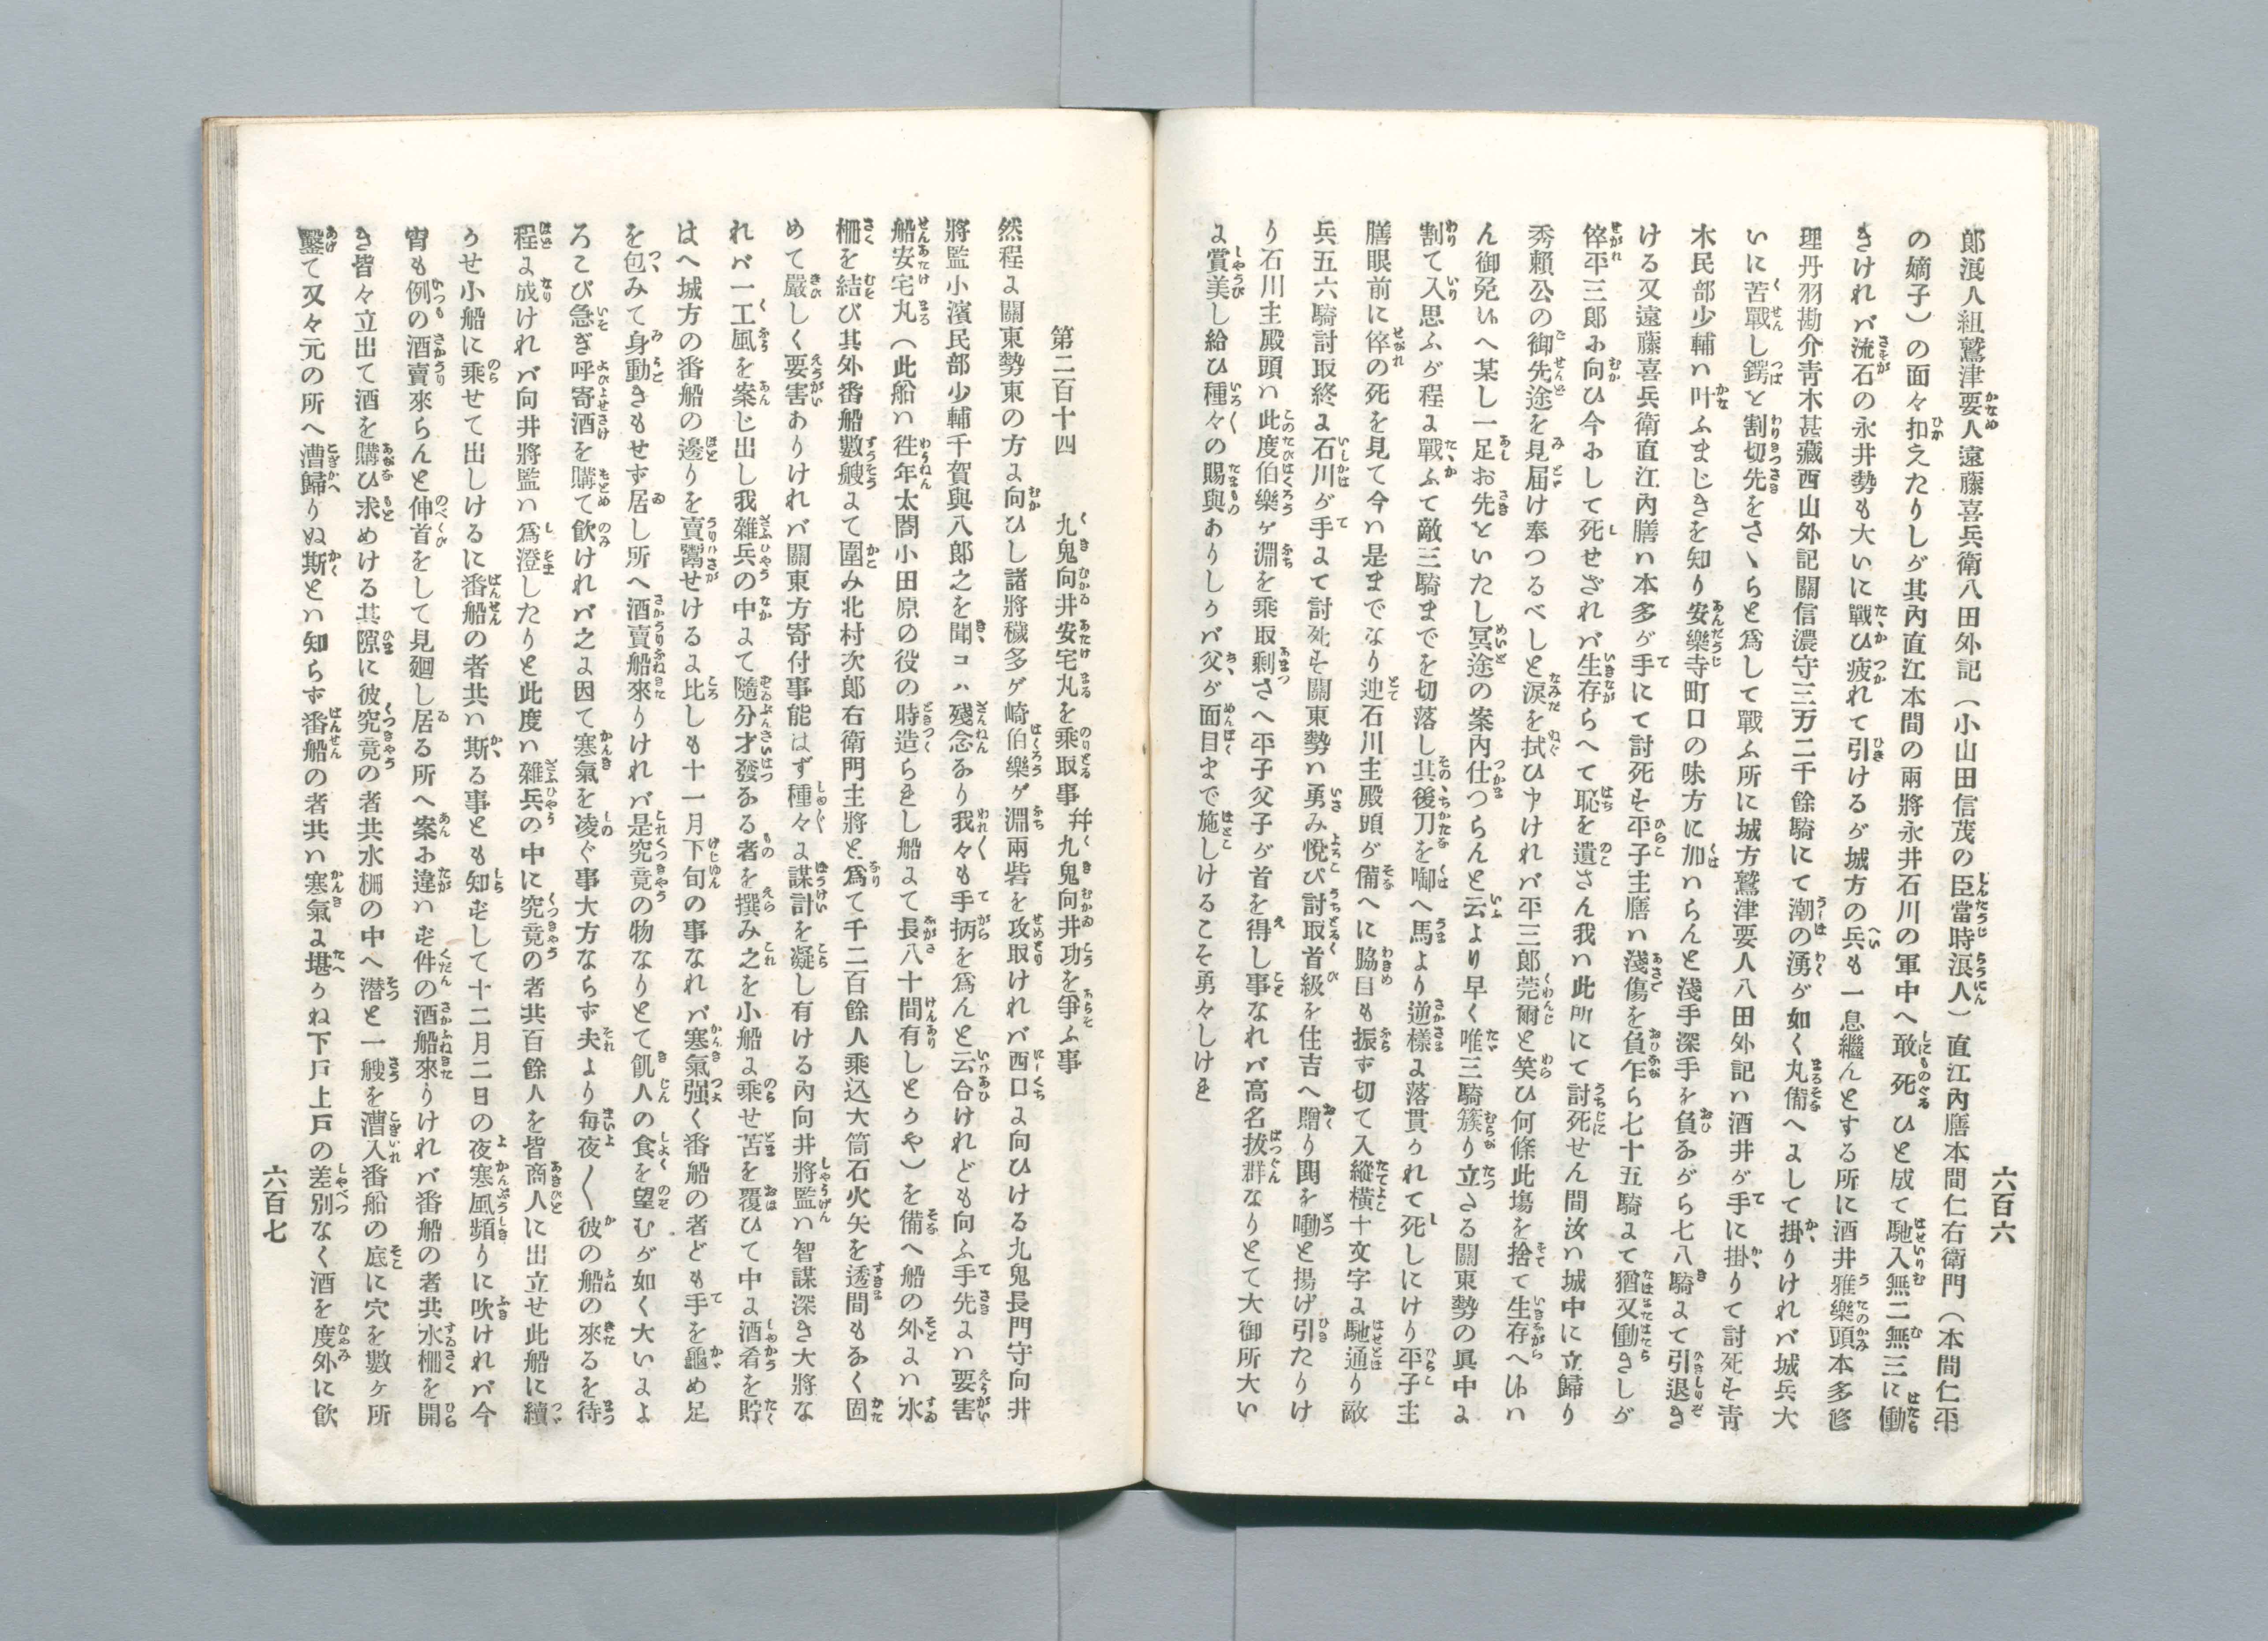 六百六
郎浪人組鷲津要人遠藤喜兵衛八田外記（小山田信茂の臣當時浪人）直江內膳本間仁右衛門（本間仁平
の嫡子）の面々扣えたりしが其內直江本間の兩將永井石川の軍中へ敢死ひと成て馳入無二無三に働
きけれバ流石の永井勢も大いに戰ひ疲れて引けるが城方の兵も一息繼んとする所に酒井雅樂頭本多修
理丹羽勘介靑木甚藏西山外記關信濃守三万二千餘騎にて潮の湧が如く丸備へにして掛りけれバ城兵大
いに苦戰し鍔と割切先をさゝらと爲して戰ふ所に城方鷲津要人八田外記ハ酒井が手に掛りて討死を靑
木民部少輔ハ叶ふまじきを知り安樂寺町口の味方に加ハらんと淺手深手を負ながら七八騎にて引退き
ける又遠藤喜兵衛直江內膳ハ本多が手にて討死を平子主膳ハ淺傷を負乍ら七十五騎にて猶又働きしが
倅平三郎に向ひ今にして死せざれバ生存らへて恥を遺さん我ハ此所にて討死せん間汝ハ城中に立歸り
秀賴公の御先途を見届け奉つるべしと淚を拭ひ申けれバ平三郎莞爾と笑ひ何條此塲を捨て生存へ候ハ
ん御免候へ某し一足お先といたし冥途の案內仕つらんと云より早く唯三騎簇り立さる關東勢の眞中に
割て入思ふが程に戰ふて敵三騎までを切落し其後刀を啣へ馬より逆樣に落貫かれて死しにけり平子主
膳眼前に倅の死を見て今ハ是までなり迚石川主殿頭が備へに脇目も振ず切て入縱橫十文字に馳通り敵
兵五六騎討取終に石川が手にて討死を關東勢ハ勇み悅び討取首級を住吉へ贈り鬨を噇と揚げ引たりけ
り石川主殿頭ハ此度伯樂ヶ淵を乘取剩さへ平子父子が首を得し事なれバ高名拔群なりとて大御所大い
に賞美し給ひ種々の賜與ありしかバ父が面目まで施しけるこそ勇々しけれ
第二百十四　九鬼向井安宅丸を乘取事幷九鬼向井功を爭ふ事
然程に關東勢東の方に向ひし諸將穢多ヶ崎伯樂ヶ淵兩砦を攻取けれバ西口に向ひける九鬼長門守向井
將監小濱民部少輔千賀與八郎之を聞コハ殘念なり我々も手柄を爲んと云合けれども向ふ手先にハ要害
船安宅丸（此船ハ徃年太閤小田原の役の時造られし船にて長八十間有しとかや）を備へ船の外にハ水
柵を結び其外番船數艘にて圍み北村次郎右衛門主將と爲て千二百餘人乘込大筒石火矢を透間もなく固
めて嚴しく要害ありけれバ關東方寄付事能はず種々に謀計を凝し有ける內向井將監ハ智謀深き大將な
れバ一工風を案じ出し我雜兵の中にて隨分才發なる者を撰み之を小船に乘せ苫を覆ひて中に酒肴を貯
はへ城方の番船の邊りを賣鬻せけるに比しも十一月下旬の事なれバ寒氣强く番船の者ども手を龜め足
を包みて身動きもせず居し所へ酒賣船來りけれバ是究竟の物なりとて飢人の食を望むが如く大いによ
ろこび急ぎ呼寄酒を購て飮けれバ之に因て寒氣を凌ぐ事大方ならず夫より每夜〱彼の船の來るを待
程に成けれバ向井將監ハ爲澄したりと此度ハ雜兵の中に究竟の者共百餘人を皆商人に出立せ此船に續
かせ小船に乘せて出しけるに番船の者共ハ斯る事とも知ずして十二月二日の夜寒風頻りに吹けれバ今
宵も例の酒賣來らんと伸首をして見廻し居る所へ案に違ハず件の酒船來りけれバ番船の者共水柵を開
き皆々立出て酒を購ひ求めける其隙に彼究竟の者共水柵の中へ潛と一艘を漕入番船の底に穴を數ヶ所
鑿て又々元の所へ漕歸りぬ斯とハ知らず番船の者共ハ寒氣に堪かね下戶上戶の差別なく酒を度外に飮
六百七